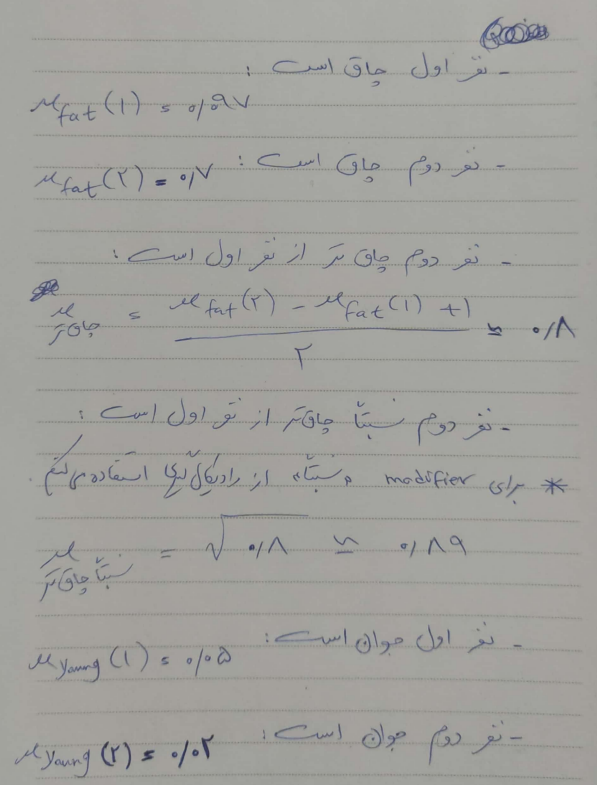 - نفر اول چاق است :
μfat(1) = ۰/۰۹۷
- نفر دوم چاق است :
μfat(۲) = ۰/۷
- نفر دوم چاق تر از نفر اول است :
μچاق‌تر = (μfat(۲) - μfat(1) + 1) / ۲ ≃ ۰/۸
- نفر دوم نسبتاً چاق‌تر از نفر اول است :
* برای modifier «نسبتاً» از رادیکال استفاده می‌کنیم.
μنسبتاً چاق‌تر = √۰/۸ ≃ ۰/۸۹
- نفر اول جوان است :
μyoung(1) = ۰/۰۵
- نفر دوم جوان است :
μyoung(۲) = ۰/۰۲